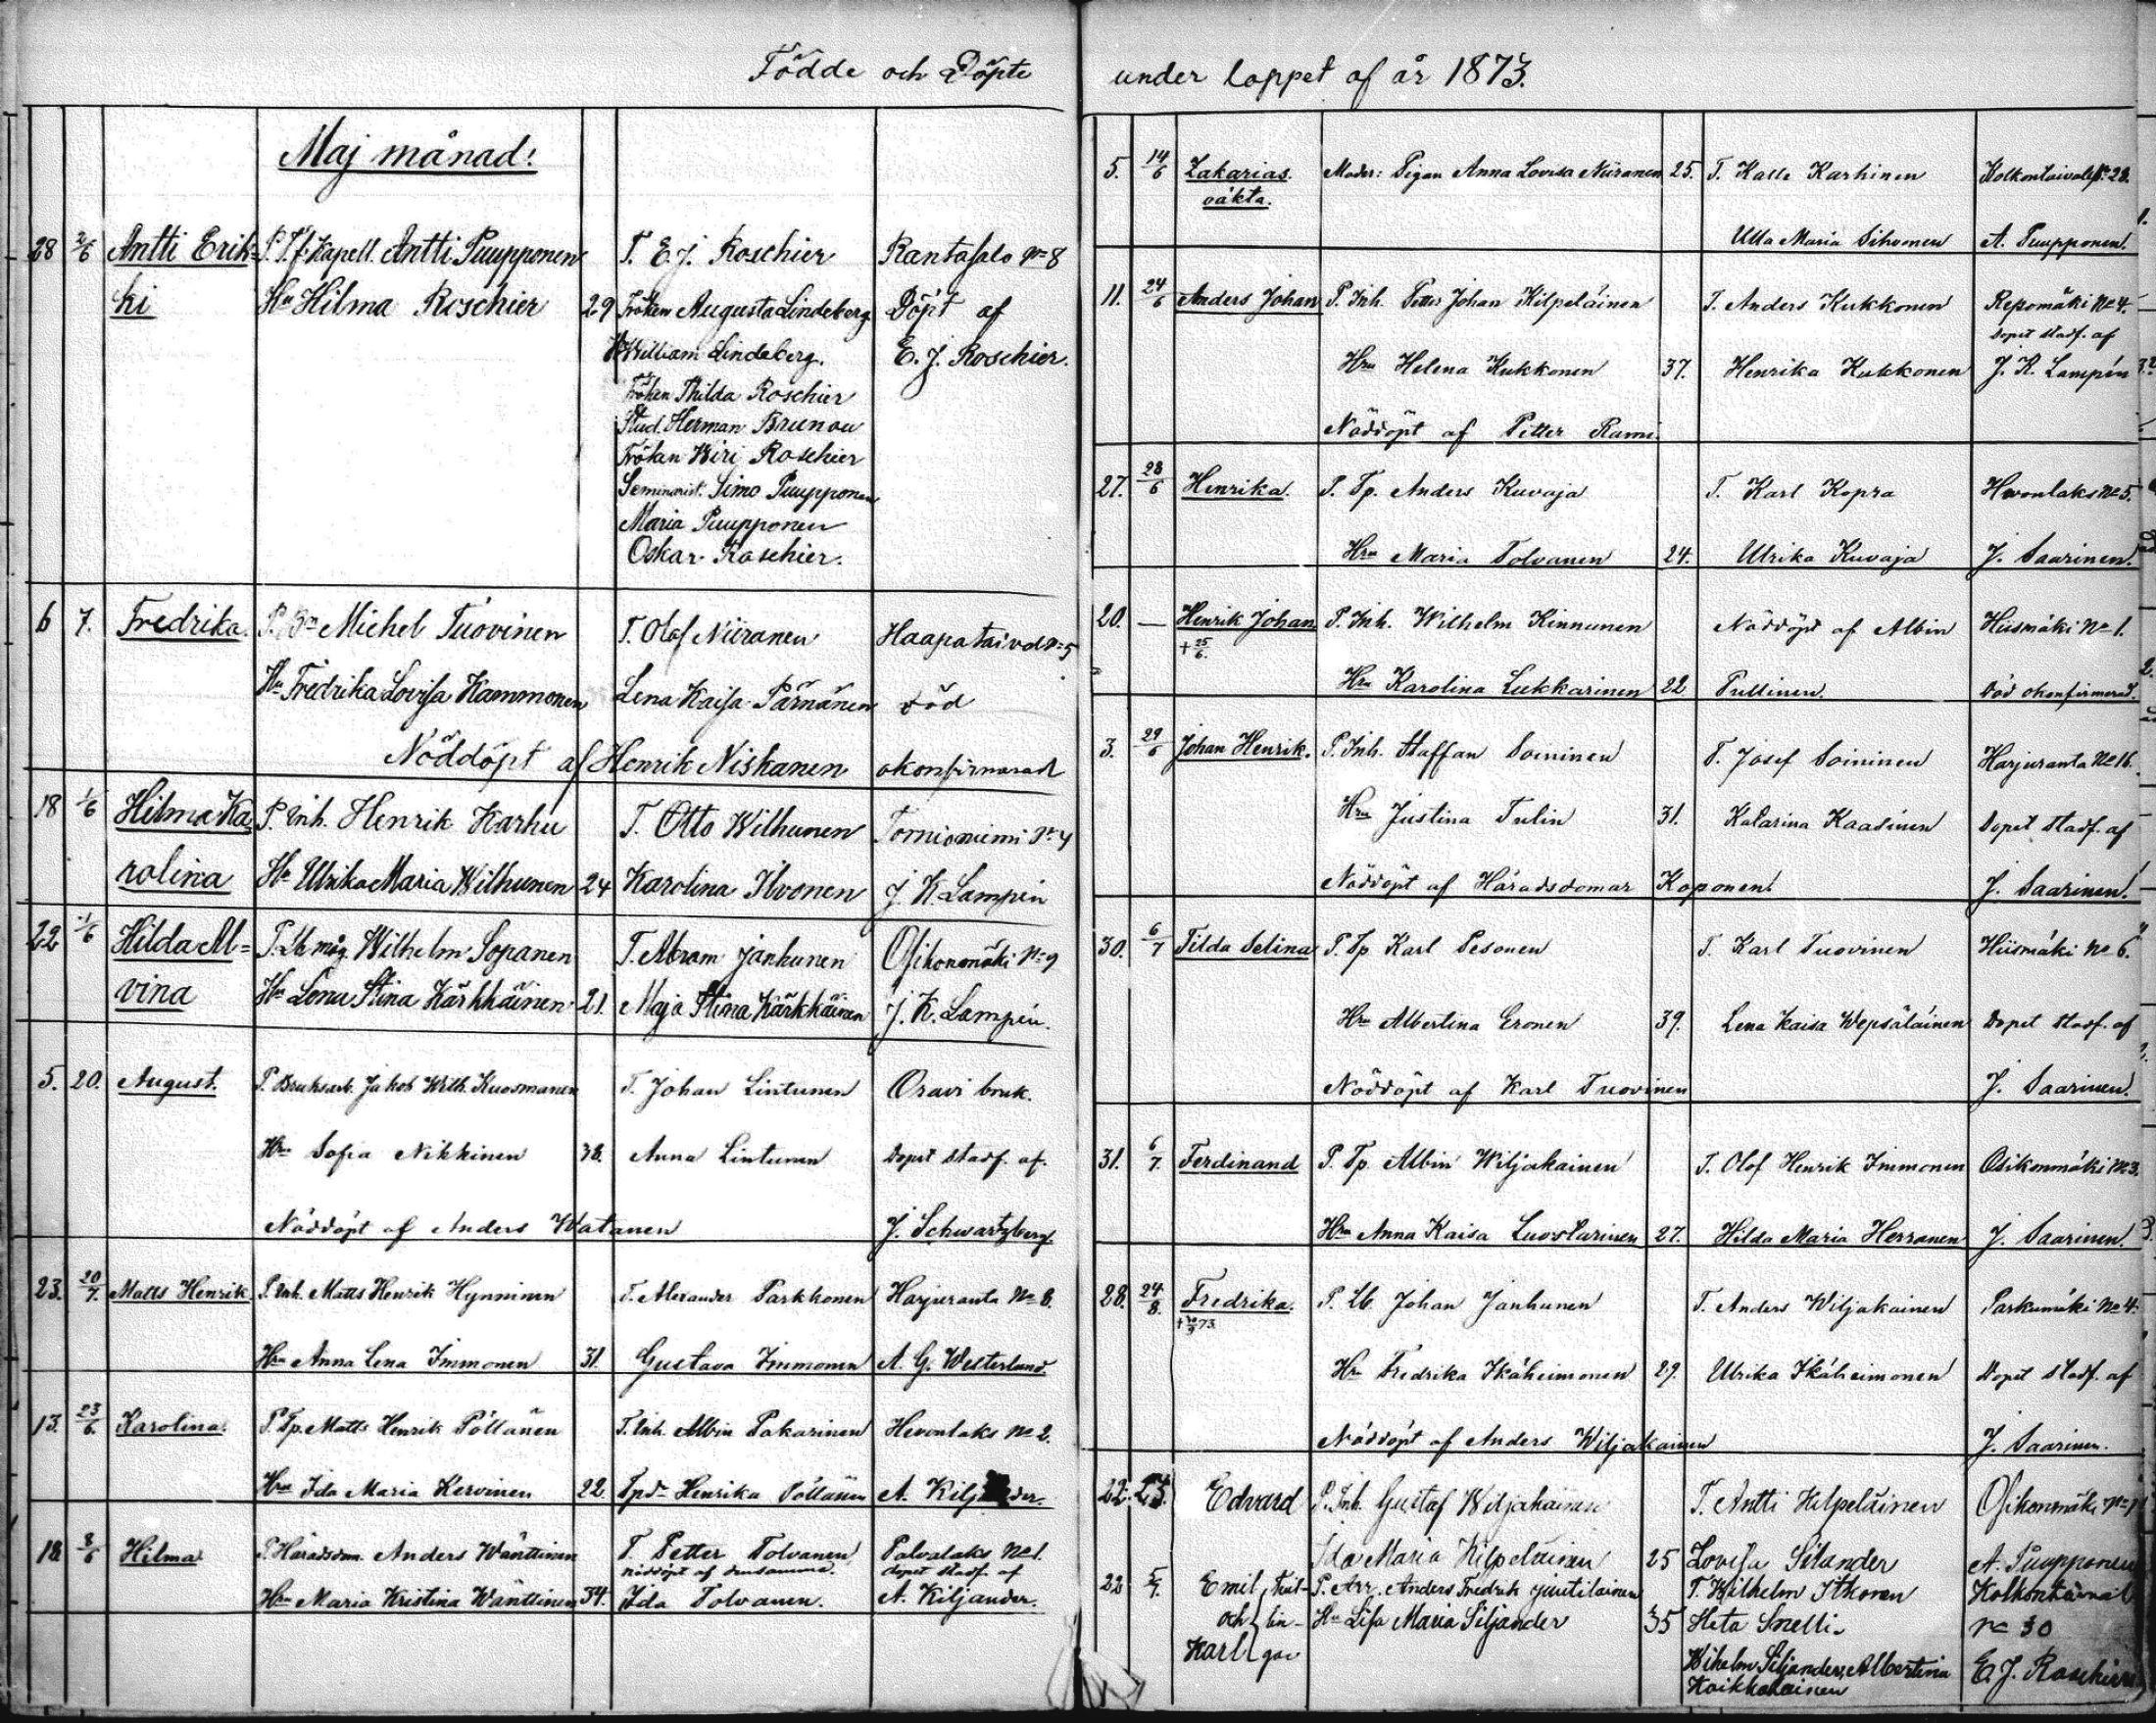 Födde och Döpte
Maj månad!
28 2/6 Antti Erik= P. T.f. Kapell. Antti Puupponen T. E. J. Roschier Rantasalo No 8
ki Hu Hilma Roschier 29 Fröken Augusta Lindeberg Döpt af
William Lindeberg. E. J. Roschier.
Fröken Thilda Roschier
Stud. Herman Brunou
Fröken Wiri Roschier
Seminarist. Simo Puupponen
Maria Puupponen
Oskar Roschier.
6 7. Fredrika. P. Bn Michel Tuovinen T. Olof Niiranen Haapataival No 5
Hu Fredrika Lovisa Kammonen Lena Kaisa Pärnänen död
Nöddöpt af Henrik Niskanen okonfirmerad
18 1/6 Hilma Ka P. Inh. Henrik Karhu T. Otto Wilhunen Tornioniemi No 4
rolina Hu Ulrika Maria Wilhunen 24 Karolina Ihvonen J. K. Lampén
22 1/6 Hilda Al= P. Lb måg Wilhelm Sopanen T. Abram Janhunen Osikonmäki No 9
vina Hu Lena Stina Kärkkäinen 21. Maja Stina Kärkkäinen J. K. Lampén.
5. 20. August. P. Bruksarb. Jakob Wilh. Kuosmanen T. Johan Lintunen Oravi bruk.
Hru Sofia Nikkinen 38. Anna Lintunen Dopet stadf. af.
Nöddöpt af Anders Watanen J. Schwartzberg.
23. 20/7. Matts Henrik P. Inh. Matts Henrik Hynninen T. Alexander Parkkonen Harjuranta No 6.
Hru Anna Lena Immonen 31. Gustava Immonen A. G. Westerlund.
13. 23/6. Karolina. P. Tp. Matts Henrik Pöllänen T. Inh. Albin Pakarinen Hevonlaks No 2.
Hru Ida Maria Kervinen 22. Tpdr Henrika Pöllänen A. Kiljander.
18. 8/6 Hilma P. Häradsdom. Anders Wänttinen T. Petter Tolvanen Palvalaks No 1.
nöddöpt af densamme. dopet stadf. af
Hru Maria Kristina Wänttinen 34. Ida Tolvanen. A. Kiljander.
under loppet af år 1873.
5. 14/6 Zakarias. Moder: Pigan Anna Lovisa Niiranen 25. T. Kalle Karhinen Kolkontaival No 28.
oäkta.
Ulla Maria Sihvonen A. Puupponen.
11. 24/6 Anders Johan P. Inh. Petter Johan Kilpeläinen T. Anders Kukkonen Repomäki No 4.
Dopet stadf. af
Hru Helena Kukkonen 37. Henrika Kukkonen J. K. Lampén
Nöddöpt af Petter Rami.
27. 28/6 Henrika. P. Tp. Anders Kuvaja T. Karl Kopra Hevonlaks No 5.
Hru Maria Tolvanen 24. Ulrika Kuvaja J. Saarinen.
20. — Henrik Johan P. Inh. Wilhelm Kinnunen Nöddöpt af Albin Hiismäki No 1.
† 25/6.
Hru Karolina Lukkarinen 22 Pullinen. Död okonfirmerad.
3. 29/6 Johan Henrik. P. Inh. Staffan Soininen T. Josef Soininen Harjuranta No 16.
Hru Justina Tulin 31. Katarina Kaasinen Dopet stadf. af
Nöddöpt af Häradsdomar Koponen. J. Saarinen.
30. 6/7 Tilda Selina P. Tp Karl Pesonen T. Karl Tuovinen Hiismäki No 6.
Hru Albertina Eronen 39. Lena Kaisa Wepsäläinen Dopet stadf. af
Nöddöpt af Karl Tuovinen J. Saarinen.
31. 6/7. Ferdinand P. Tp. Albin Wiljakainen T. Olof Henrik Immonen Osikonmäki No 3.
Hru Anna Kaisa Luostarinen 27. Hilda Maria Herranen J. Saarinen.
28. 24/8. Fredrika. P. Lb. Johan Janhunen T. Anders Wiljakainen Parkumäki No 4.
Hru Fredrika Ikäheimonen 29. Ulrika Ikäheimonen Dopet stadf. af
Nöddöpt af Anders Wiljakainen J. Saarinen.
22. Edvard P. Inh. Gustaf Wiljakainen T. Antti Kilpeläinen Osikonmäki
Ida Maria Kilpeläinen 25 Lovisa Silander A. Puupponen
22 Emil tvil- P. Arr. Anders Fredrik Jäntiläinen T. Wilhelm Itkonen Kolkontaival
och lin- Hu Lisa Maria Siljander 35 Heta Snelli. No 30
Karl gar Wilhelm Siljander, Albertina E. J. Roschier
Koikkalainen